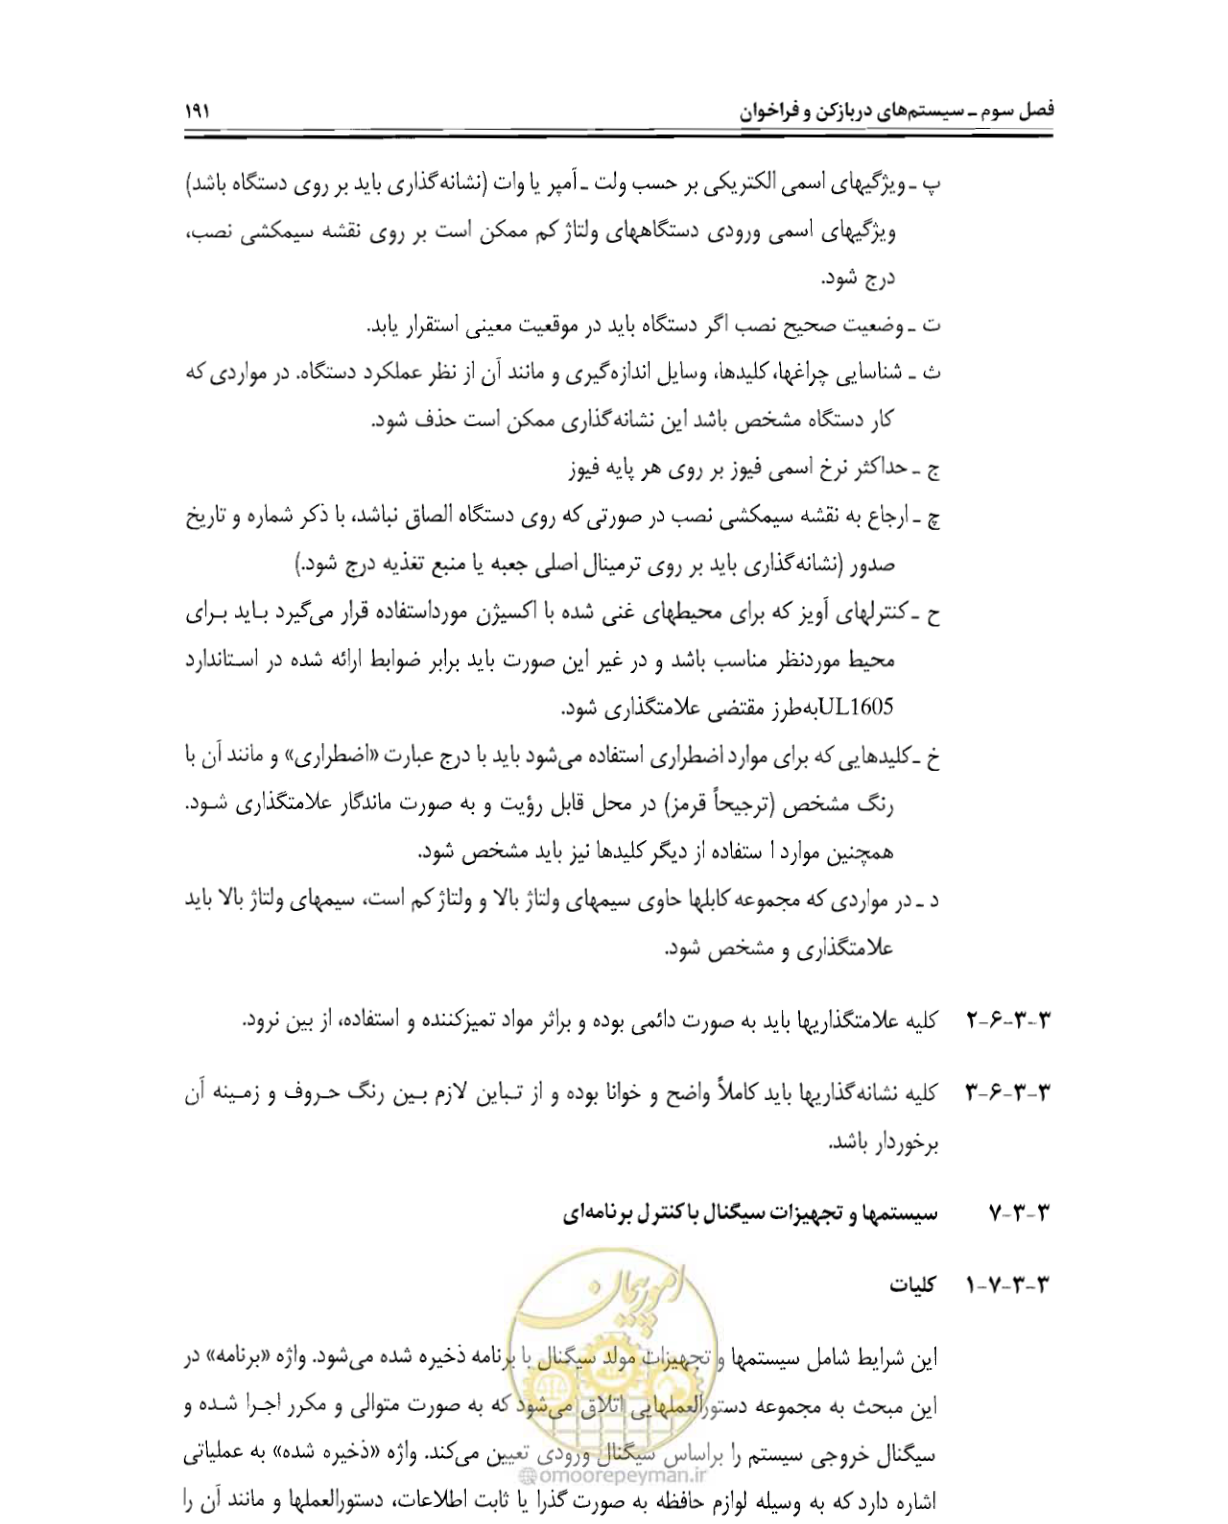 فصل سوم ـ سیستم‌های دربازکن و فراخوان ۱۹۱
پ ـ ویژگیهای اسمی الکتریکی بر حسب ولت ـ آمپر یا وات (نشانه‌گذاری باید بر روی دستگاه باشد)
ویژگیهای اسمی ورودی دستگاههای ولتاژ کم ممکن است بر روی نقشه سیمکشی نصب،
درج شود.
ت ـ وضعیت صحیح نصب اگر دستگاه باید در موقعیت معینی استقرار یابد.
ث ـ شناسایی چراغها، کلیدها، وسایل اندازه‌گیری و مانند آن از نظر عملکرد دستگاه. در مواردی که
کار دستگاه مشخص باشد این نشانه‌گذاری ممکن است حذف شود.
ج ـ حداکثر نرخ اسمی فیوز بر روی هر پایه فیوز
چ ـ ارجاع به نقشه سیمکشی نصب در صورتی که روی دستگاه الصاق نباشد، با ذکر شماره و تاریخ
صدور (نشانه‌گذاری باید بر روی ترمینال اصلی جعبه یا منبع تغذیه درج شود.)
ح ـ کنترلهای آویز که برای محیطهای غنی شده با اکسیژن مورداستفاده قرار می‌گیرد باید برای
محیط موردنظر مناسب باشد و در غیر این صورت باید برابر ضوابط ارائه شده در استاندارد
UL1605به‌طرز مقتضی علامتگذاری شود.
خ ـ کلیدهایی که برای موارد اضطراری استفاده می‌شود باید با درج عبارت «اضطراری» و مانند آن با
رنگ مشخص (ترجیحاً قرمز) در محل قابل رؤیت و به صورت ماندگار علامتگذاری شود.
همچنین موارد ا ستفاده از دیگر کلیدها نیز باید مشخص شود.
د ـ در مواردی که مجموعه کابلها حاوی سیمهای ولتاژ بالا و ولتاژ کم است، سیمهای ولتاژ بالا باید
علامتگذاری و مشخص شود.
۳-۳-۶-۲ کلیه علامتگذاریها باید به صورت دائمی بوده و براثر مواد تمیزکننده و استفاده، از بین نرود.
۳-۳-۶-۳ کلیه نشانه‌گذاریها باید کاملاً واضح و خوانا بوده و از تباین لازم بین رنگ حروف و زمینه آن
برخوردار باشد.
۳-۳-۷ سیستمها و تجهیزات سیگنال با کنترل برنامه‌ای
۳-۳-۷-۱ کلیات
امور پیمان
این شرایط شامل سیستمها و تجهیزات مولد سیگنال با برنامه ذخیره شده می‌شود. واژه «برنامه» در
این مبحث به مجموعه دستورالعملهایی اتلاق می‌شود که به صورت متوالی و مکرر اجرا شده و
سیگنال خروجی سیستم را براساس سیگنال ورودی تعیین می‌کند. واژه «ذخیره شده» به عملیاتی
@omoorepeyman.ir
اشاره دارد که به وسیله لوازم حافظه به صورت گذرا یا ثابت اطلاعات، دستورالعملها و مانند آن را